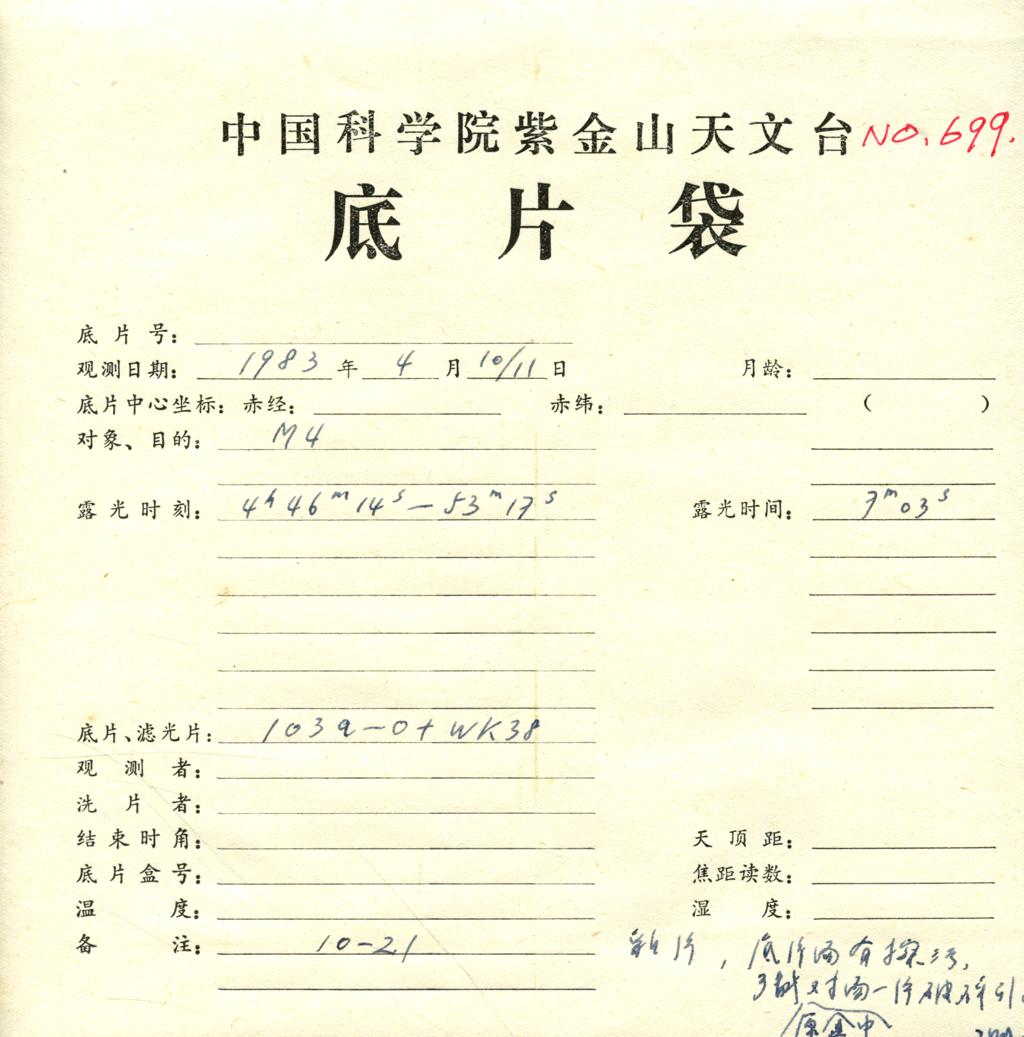 中国科学院紫金山天文台 NO.699.
底片袋
底片号:
观测日期: 1983 年 4 月 10/11 日 月龄:
底片中心坐标: 赤经: 赤纬: ( )
对象、目的: M4
露光时刻: 4h 46m 14s — 53m 17s 露光时间: 7m 03s
底片、滤光片: 103a-O + WK38
观测者:
洗片者:
结束时角: 天顶距:
底片盒号: 焦距读数:
温度: 湿度:
备注: 10-21 片, 底片面有擦
对面一片破碎引
原盒中